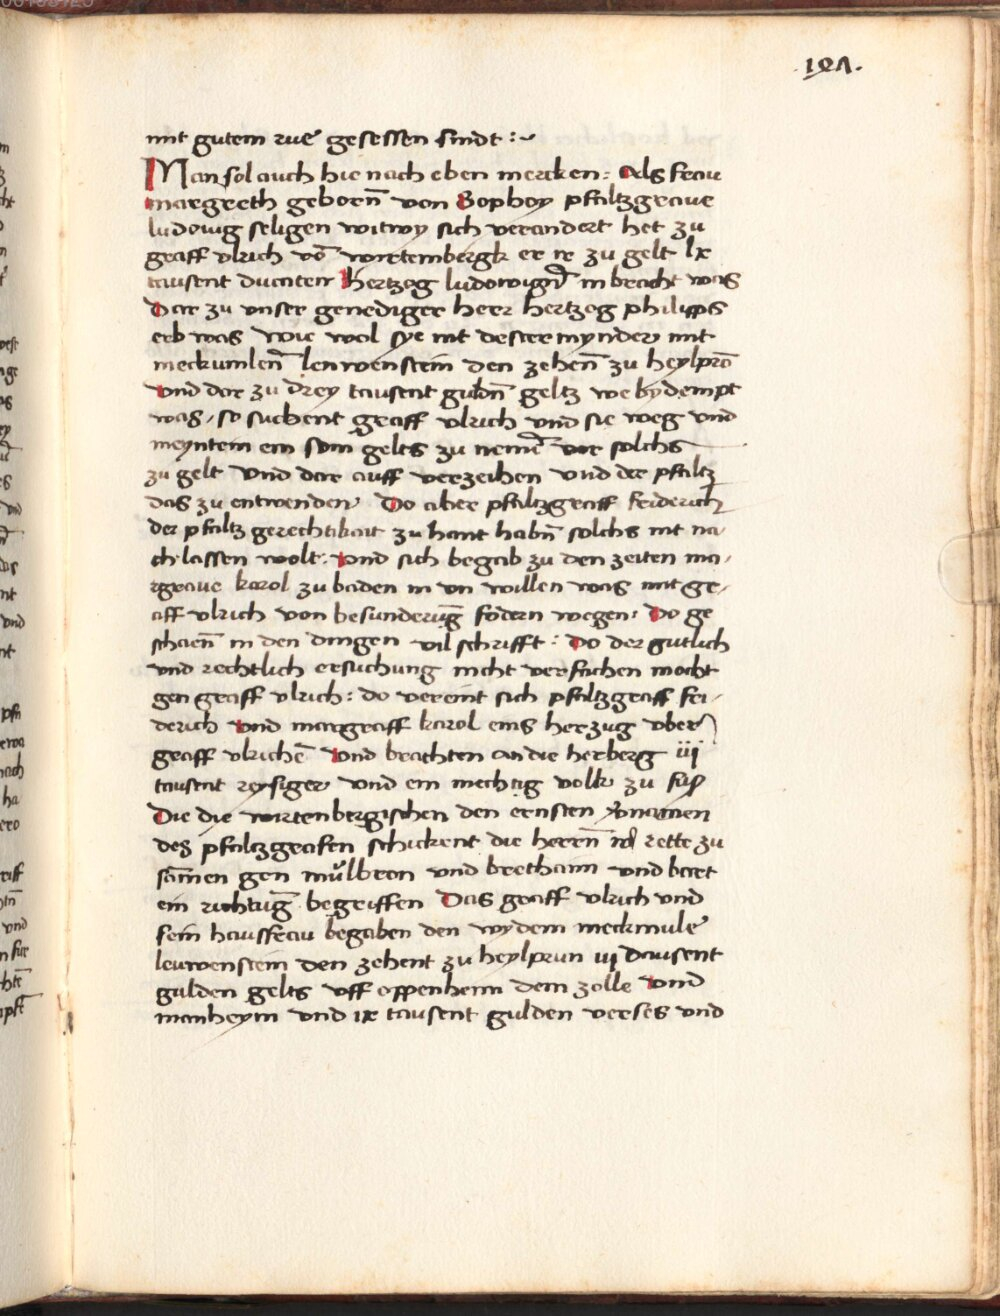 191.
mit gutem rue gesessen sindt :~
Man sol auch hie nach eben mercken: Als frau
margreth geborn̄ von Sophoy pfaltzgraue
ludowig seligen witwy sich verandert het zu
graff vlrich vō wirtembergk er ir zu gelt lx
tausent ducaten Hertzog ludowign̄ in bracht was
Dar zu vnser genediger herr hertzog philipps
erb was wie wol sye nit dester mynder mit
meckumlen̄ lenwenstein den zehen̄ zu heylprō
vnd dar zu drey tausent guldn̄ geltz we bydempt
was, so suchent graff vlrich vnd sie weg vnd
meyntem ein som gelts zu nemē vor solchs
zu gelt vnd dar auff verzeihen vnd der pfaltz
das zu entwenden, Do aber pfaltzgraff friderich
der pfaltz gerechtikait zu hant habn̄ solchs nit na
ch lassen wolt. Vnd sich begab zu den zeiten ma,
rgraue karol zu baden in vn willen was mit gr,
aff vlrich von besunderūg fodern wegen, Do ge
schaen̄ in den dingen vil schrifft: Do der gutlich
vnd rechtlich ersuchung nicht verfachen mocht
gen graff vlrich: do vereint sich pfaltzgraff fri,
derich vnd margraff karol eins herzug vber
graff vlrichē Vnd brachten an die herberg iij
tausent reysiger vnd ein mechtig volk zu fuß
Die die wirtenbergischen den ernsten
dez pfaltzgrafen schickent die herrn̄ rette zu
sāmen gen můlbron vnd brethaim vnd bart
ein richtūg begriffen Das graff vlrich vnd
sein haussfrau begaben den wydem meckmule
leuwenstein den zehent zu heylprun iij dausent
gulden gelts vff oppenheim dem zolle vnd
manheym vnd ix tausent gulden verses vnd